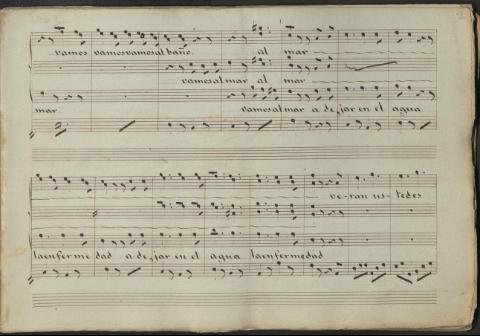 vamos vamosvamosal baño. al mar
vamosal mar al mar
mar. vamosal mar a de jar en el agua
ve-ran us-tedes
laenferme dad a de jar en el agua laenfermedad